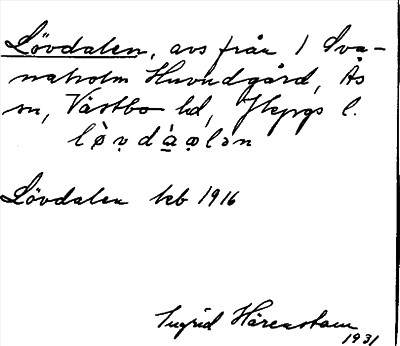 Lövdalen, avs från 1 Sva-
naholm Huvudgård, Ås
sn, Västbo hd, Jkpgs l.
lø̀v̥dà̠a̠lən
Lövdalen kb 1916
Ingrid Härenstam
1931